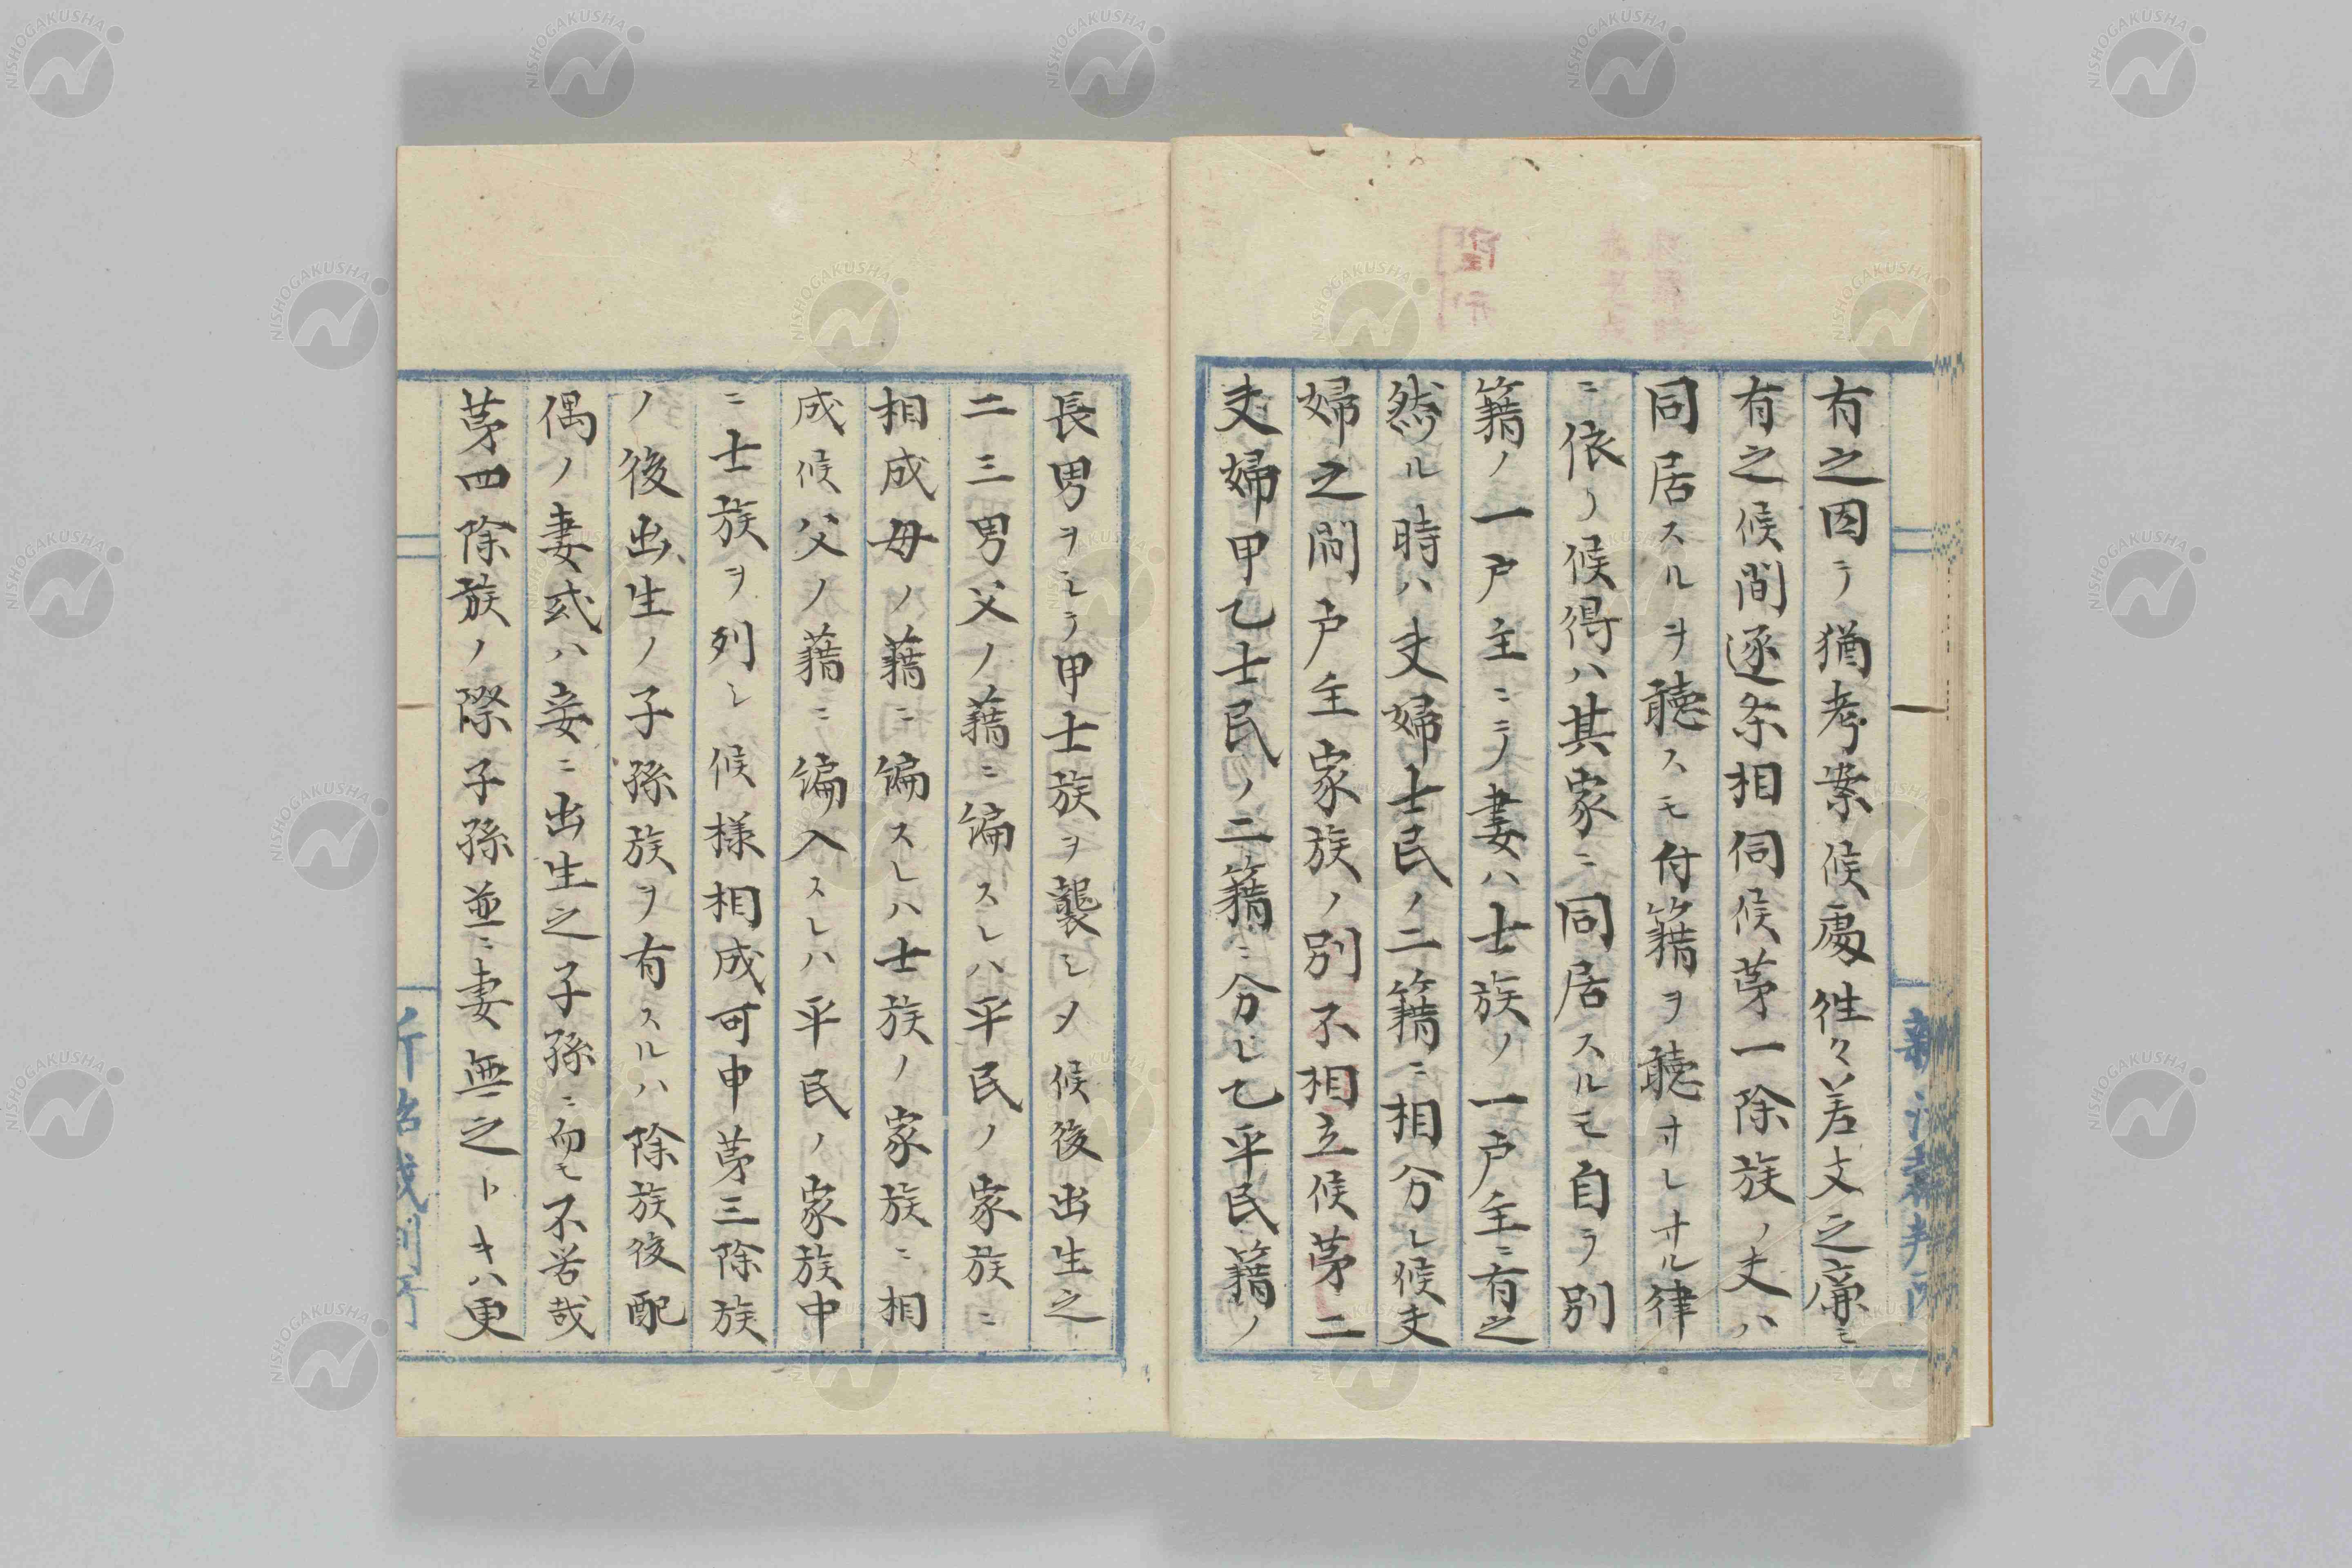 有之因ヲ猶考案候處徃々差支之廉モ
有之候間逐条相伺候茅一除族ノ夫ハ
同居スルヲ聴スモ付籍ヲ聴サレサル律
ニ依リ候得ハ其家ニ同居スルモ自ラ別
籍ノ一戸主ニテ妻ハ士族ノ一戸主ニ有之
然ル時ハ夫婦士民ノ二籍ニ相分レ候夫
婦之間戸主家族ノ別不相立候茅二
夫婦甲乙士民ノ二籍ニ分レ乙平民籍ノ
長男ヲシテ甲士族ヲ襲シメ候後出生之
二三男父ノ藉ニ編スレハ平民ノ家族ニ
相成母ノ藉ニ編スレハ士族ノ家族ニ相
成候父ノ藉ニ編入スレハ平民ノ家族中
ニ士族ヲ列シ候様相成可申茅三除族
ノ後出生ノ子孫族ヲ有スルハ除族後配
偶ノ妻或ハ妾ニ出生之子孫ニ而モ不苦哉
茅四除族ノ際子孫並ニ妻無之トキハ更
NISHOGAKUSHA